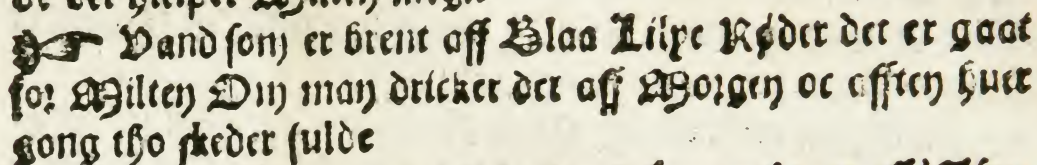 ☞ Vand som er brent aff Blaa Lilye Røder det er gaat
for Milten Om man dricker det aff Morgen oc afften huer
gong tho skeder fulde